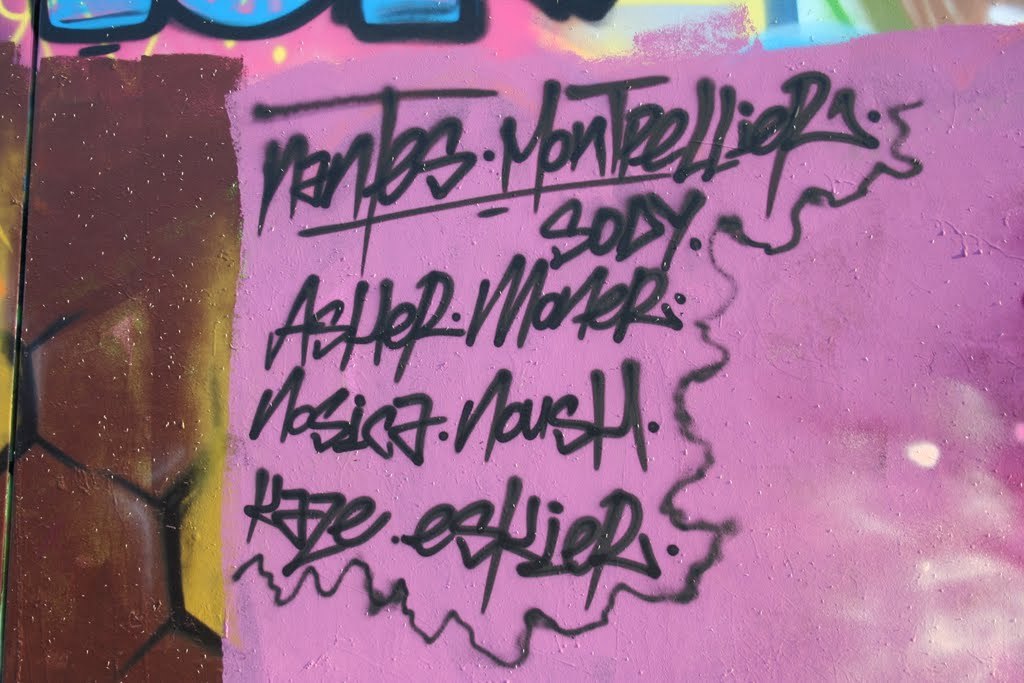 Nantes. Montpellier.
SODY.
AsHeR. Moner.
Nosica. NousH.
Kaze. esKieR.